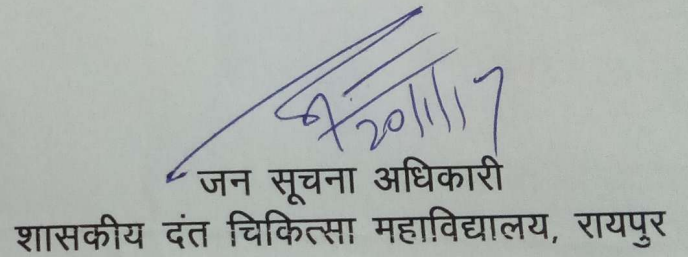 20/1/17
जन सूचना अधिकारी
शासकीय दंत चिकित्सा महाविद्यालय, रायपुर